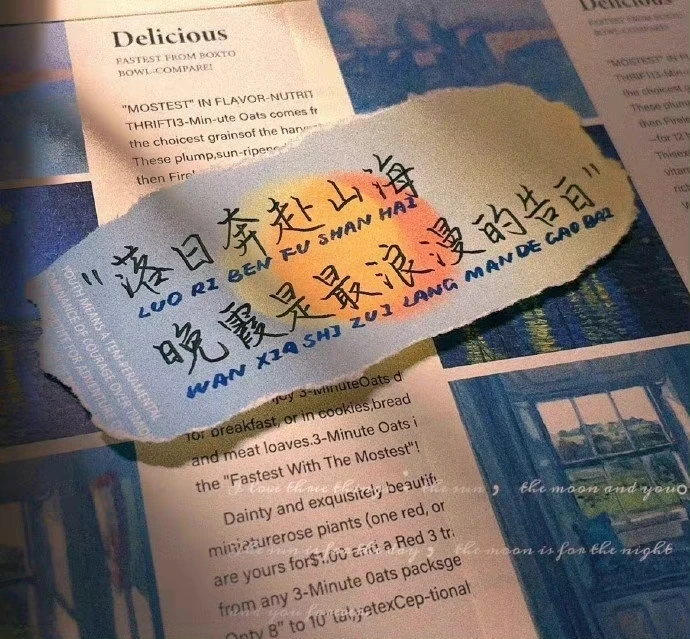 Delicious
FASTEST FROM BOXTO
BOWL-COMPARE!
"MOSTEST" IN FLAVOR-NUTRIT
THRIFTI3-Min-ute Oats comes fr
the choicest grainsof the harv
These plump,sun-ripen
then Firel
"落日奔赴山海
LUO RI BEN FU SHAN HAI
晚霞是最浪漫的告白"
WAN XIA SHI ZUI LANG MAN DE GAO BAI
YOUTH MEANS A TEM-PERAMENTAL
OF COURAGE OVER
FOR
joy 3-MinuteOats d
for breakfast, or in cookies,bread
and meat loaves.3-Minute Oats i
the "Fastest With The Mostest"!
Dainty and exquisitely beautif
miniaturerose piants (one red, or
are yours for$1.00 and a Red 3 tr
from any 3-Minute 0ats packsge
Onty 8" to 10"
Delicious
FASTEST FROM BOXTO
BOWL-COMPARE!
"MOSTEST"
THRIFTI3-Min
the choicest
These plum
then Firel
I love three things, the sun, the moon and you。
The sun is for the day, the moon is for the night
and you forever